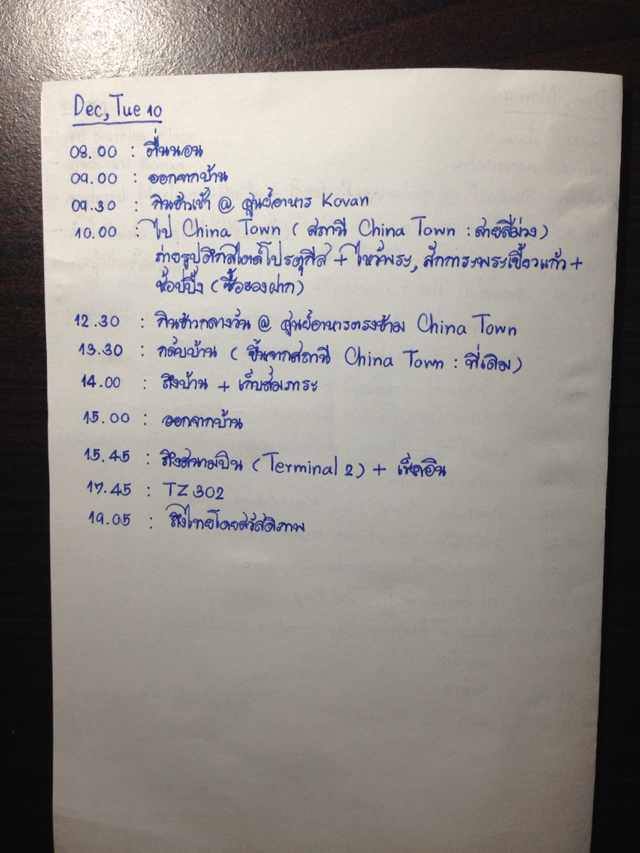 Dec, Tue 10
08.00 : ตื่นนอน
09.00 : ออกจากบ้าน
09.30 : กินข้าวเช้า @ ศูนย์อาหาร Kovan
10.00 : ไป China Town ( สถานี China Town : สายสีม่วง )
ถ่ายรูปตึกสไตล์โปรตุกีส + ไหว้พระ, สักการะพระเขี้ยวแก้ว +
ช้อปปิ้ง (ซื้อของฝาก)
12.30 : กินข้าวกลางวัน @ ศูนย์อาหารตรงข้าม China Town
13.30 : กลับบ้าน ( ขึ้นจากสถานี China Town : ที่เดิม )
14.00 : ถึงบ้าน + เก็บสัมภาระ
15.00 : ออกจากบ้าน
15.45 : ถึงสนามบิน (Terminal 2) + เช็คอิน
17.45 : TZ302
19.05 : ถึงไทยโดยสวัสดิภาพ